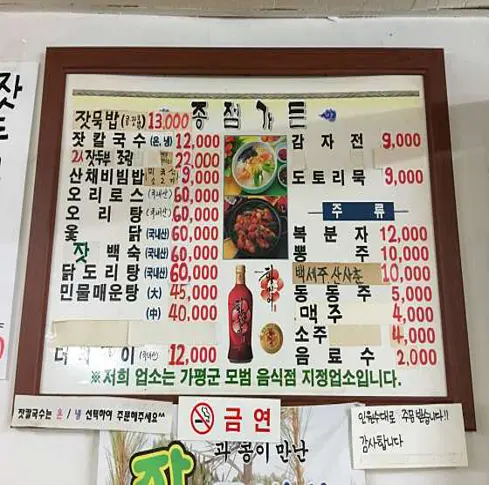 종점가든
잣묵밥 13,000
잣칼국수 (온,냉) 12,000
22,000
산채비빔밥 9,000
오리로스 (국내산) 60,000
오리탕 (국내산) 60,000
옻닭 (국내산) 60,000
잣백숙 (국내산) 60,000
닭도리탕 (국내산) 60,000
민물매운탕 (大) 45,000
(中) 40,000
12,000
감자전 9,000
도토리묵 9,000
주류
복분자 12,000
뽕주 10,000
백세주 산사춘 10,000
동동주 5,000
맥주 4,000
소주 4,000
음료수 2,000
※저희 업소는 가평군 모범 음식점 지정업소입니다.
잣칼국수는 온/냉 선택하여 주문해주세요^^
금연
인원수대로 주문받습니다!!
감사합니다
과 콩이 만난
잣